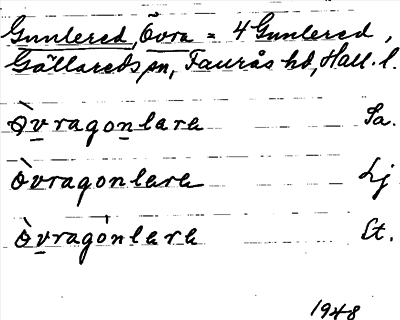 Gunlered, Övra = 4 Gunlered,
Gällareds sn, Faurås hd, Hall. l.
òvragonlara Sa.
òvragonlara Lj
òvragònlara Et.
1948